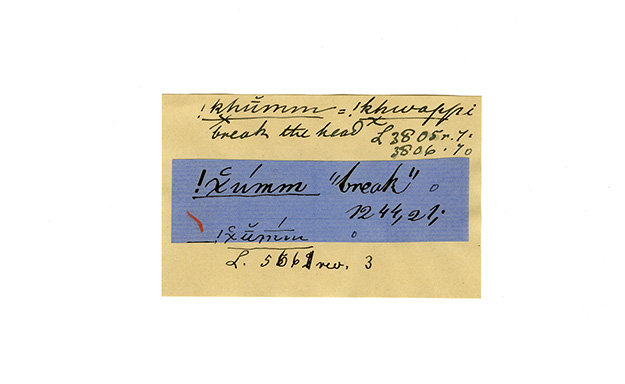 !khŭmm = !khwappi
break the head L 3805 r. 7.
3806 . 7o
!x̆úmm "break" o
1244, 21.
— !x̆ŭḿm o
L. 5661 rev. 3